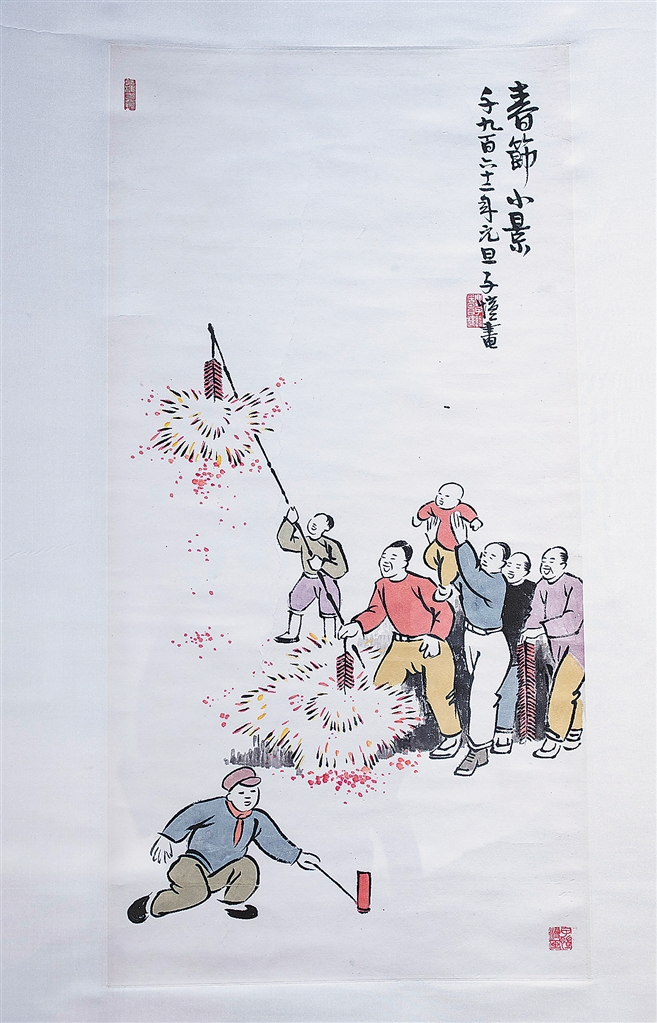 春節小景
千九百六十二年元旦子愷畫